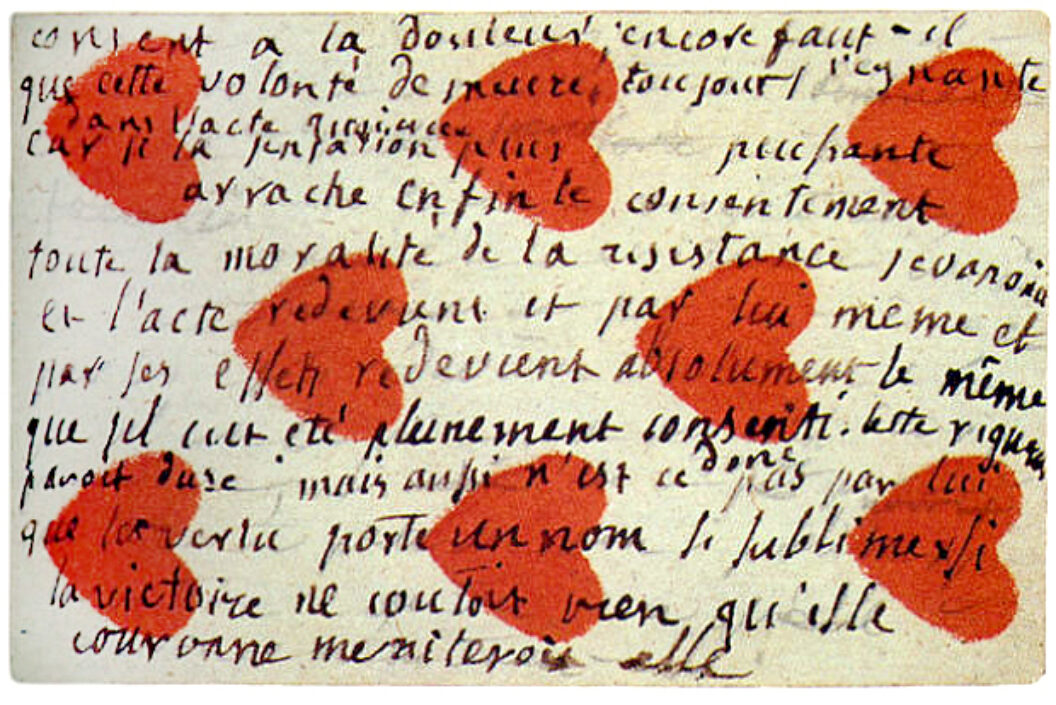 consent a la douleur, encore faut-il
que cette volonté de               toujours regnante
dans l'acte
car si la sensation plus puissante
arrache enfin le consentement
toute la moralité de la resistance sevanoui
et l'acte redevient et par lui meme et
par ses effets redevient absolument le même
que sil eut eté pleinement consenti. cette rigueur
paroit dure, mais aussi n'est ce donc pas par lui
que la vertu porte un nom si sublime si
la victoire ne coutoit rien qu'elle
couronne meriteroit elle